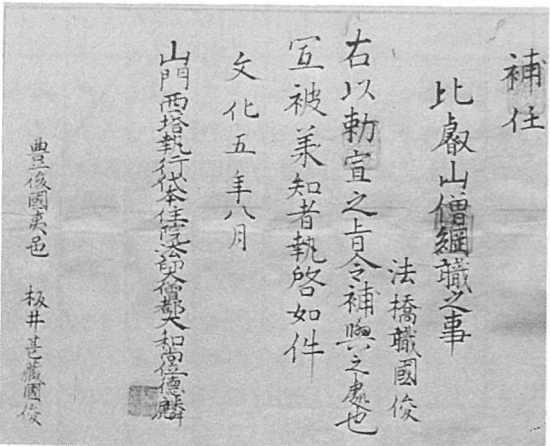 補任
比叡山僧綱職之事
法橋職國俊
右以勅宣之旨令補與之處也
宜被兼知者執啓如件
文化五年八月
山門西塔執行代本住院法印大僧都大和尚位德麟
豊後國夷邑 板井甚藏國俊